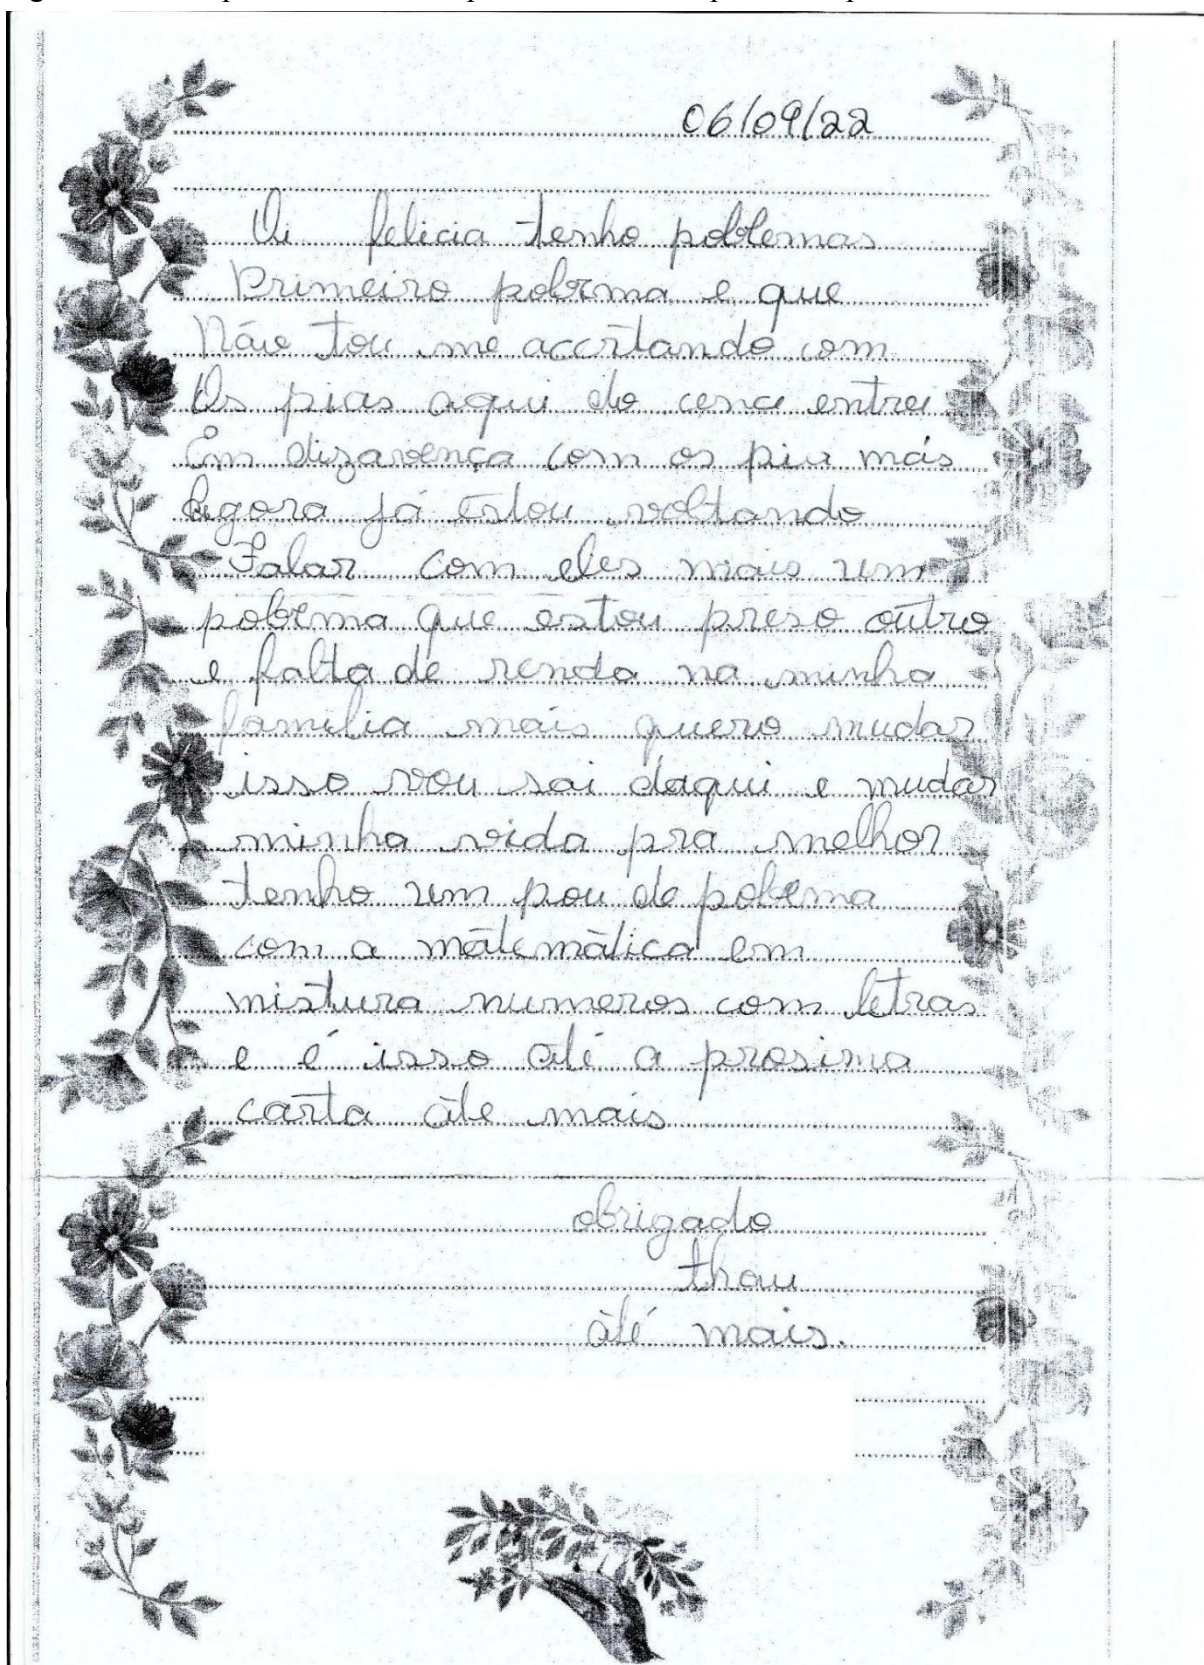 06/09/22
Oi felicia tenho poblemas
Primeiro poblema e que
Não tou me acertando com
Os pias aqui do cence entrei
Em dizavença com os pia mais
Agora já estou voltando
Falar com eles mais um
poblema que estou preso outro
e falta de renda na minha
familia mais quero mudar
isso vou sai daqui e mudar
minha vida pra melhor
tenho um pou de poblema
com a matemática em
mistura numeros com letras
e é isso até a prosima
carta ate mais
obrigado
thau
até mais.